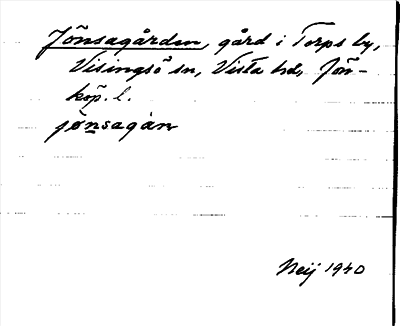 Jönsagården, gård i Torps by,
Visingsö sn, Vista hd, Jön-
köp. l.
jönsagàn
Neij 1940